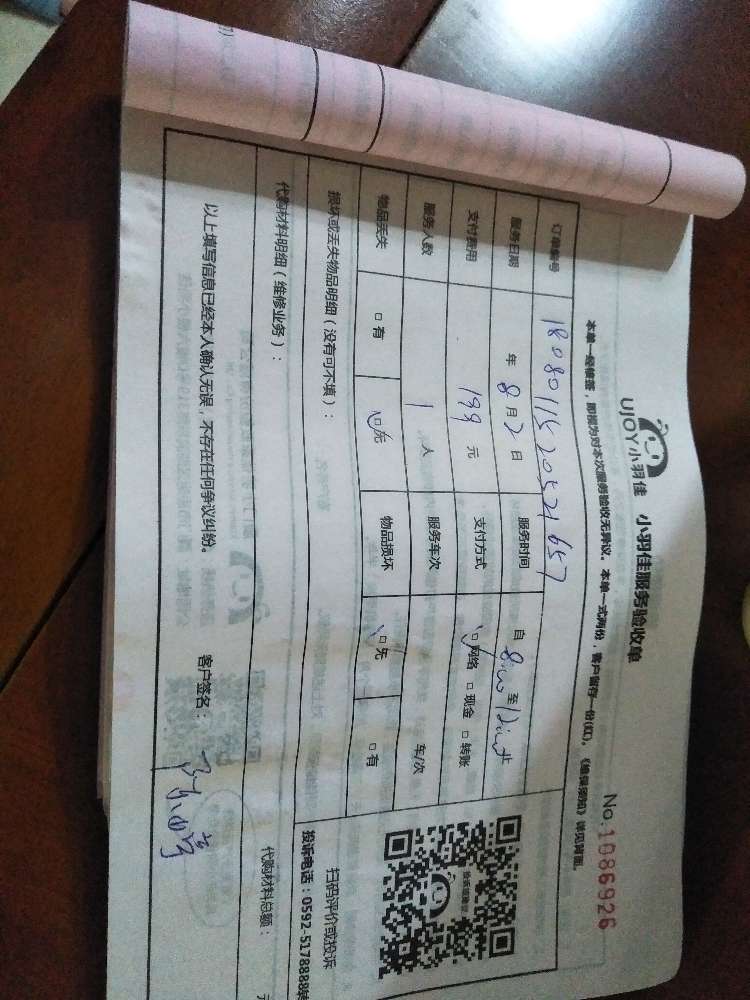 UJOY小羽佳 小羽佳服务验收单 No.1086926
本单一经修签，即视为对本次服务验收无异议。本单一式两份，客户留存一份(红)。《维保须知》详见背面。
订单编号 18080115205271657
服务日期 年8月2日 服务时间 自8:00至12:00
支付费用 199元 支付方式 □网络 □现金 □转账
服务人数 1人 服务车次 车/次
物品丢失 □有 □无 物品损坏 □无 □有
损坏或丢失物品明细（没有可不填）：
扫码评价或投诉
投诉电话：0592-5178888转
代购材料明细（维修业务）： 代购材料总额： 元
以上填写信息已经本人确认无误，不存在任何争议纠纷。 客户签名：